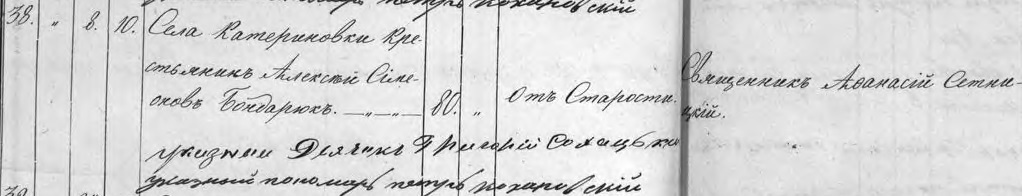 указный пономарь петръ кохановскій
38. " 8. 10. Села Катериновки Кре-
стьянинъ Алексѣй Симе-
оновъ Бондарюкъ. —"—"— 80. " Отъ Старости. Священникъ Аѳанасій Сетни-
цкій.
указный Дьячекъ Григорій Сохацькій
указный пономарь петръ кохановскій
38.